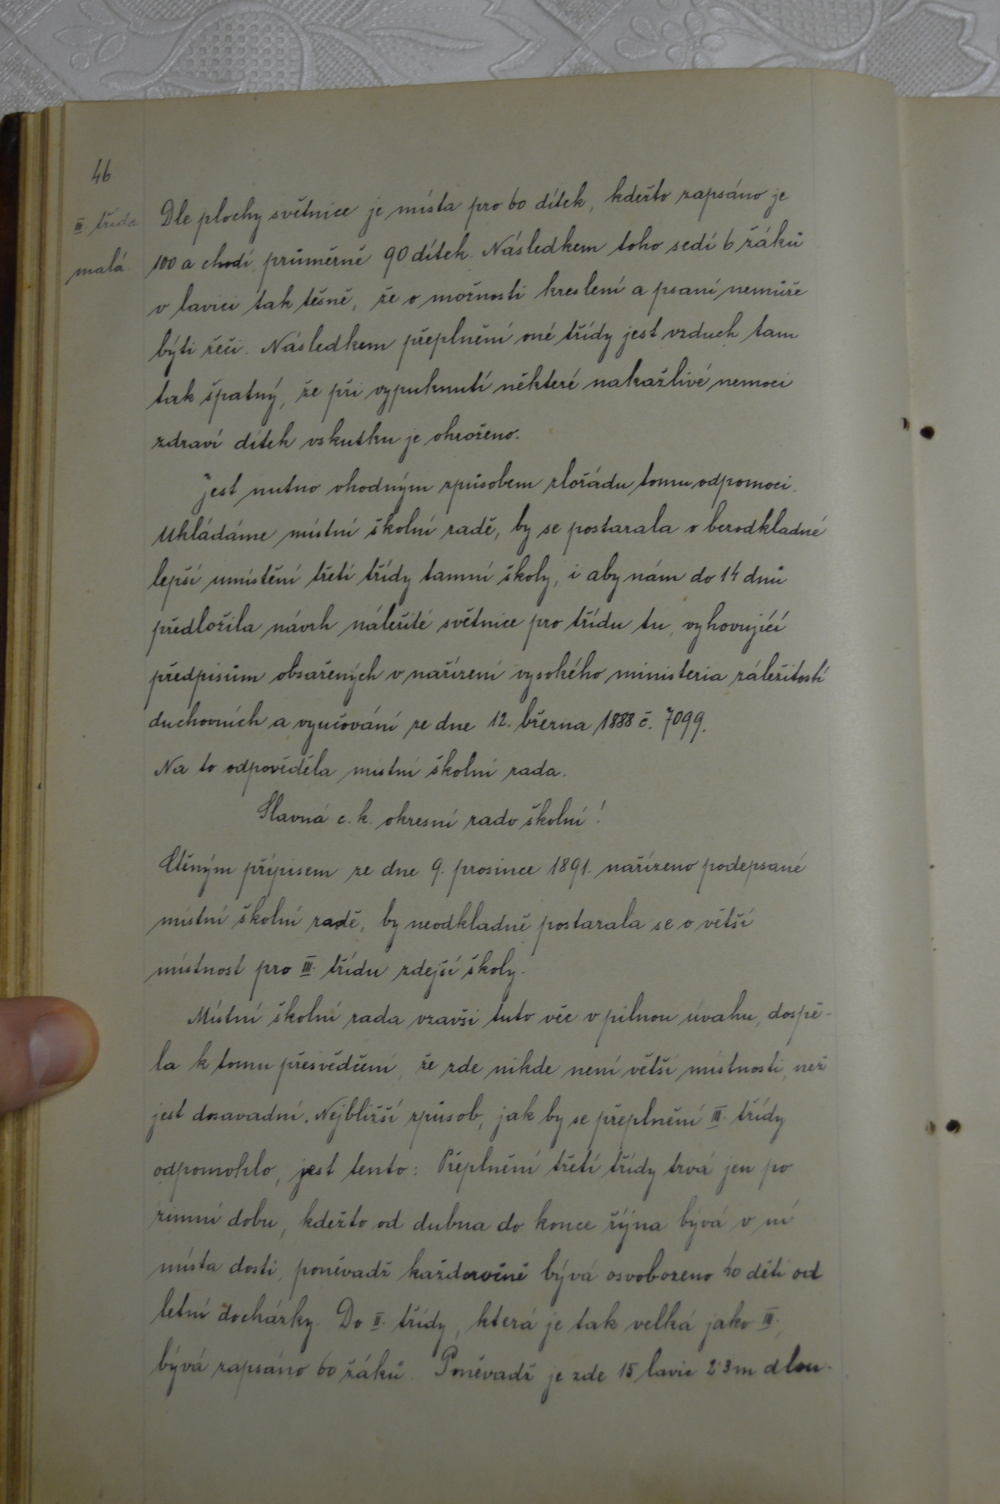 46
III třída
malá.
Dle plochy světnice je místa pro 60 dítek, kdežto zapsáno je
100 a chodí průměrně 90 dítek. Následkem toho sedí 6 žáků
v lavici tak těsně, že o možnosti kreslení a psaní nemůže
býti řeči. Následkem přeplnění oné třídy jest vzduch tam
tak špatný, že při vypuknutí některé nakažlivé nemoci
zdraví dítek vskutku je ohroženo.
Jest nutno vhodným způsobem zlořádu tomu odpomoci.
Ukládáme místní školní radě, by se postarala o bezodkladné
lepší umístění třetí třídy tamní školy, i aby nám do 14 dnů
předložila návrh náležité světnice pro třídu tu, vyhovující
předpisům obsaženým v nařízení vysokého ministeria záležitostí
duchovních a vyučování ze dne 12. března 1888 č. 7099.
Na to odpověděla místní školní rada.
Slavná c. k. okresní rado školní!
Ctěným přípisem ze dne 9. prosince 1891. nařízeno podepsané
místní školní radě, by neodkladně postarala se o větší
místnost pro III. třídu zdejší školy.
Místní školní rada vzavši tuto věc v pilnou úvahu, dospě-
la k tomu přesvědčení, že zde nikde není větší místnosti, než
jest dosavadní. Nejbližší způsob, jak by se přeplnění III. třídy
odpomohlo, jest tento: Přeplnění třetí třídy trvá jen po
zimní dobu, kdežto od dubna do konce října bývá v ní
místa dosti, poněvadž každoročně bývá osvobozeno 40 dětí od
letní docházky. Do II. třídy, která je tak velká jako III.,
bývá zapsáno 60 žáků. Poněvadž je zde 15 lavic 2·3m dlou-